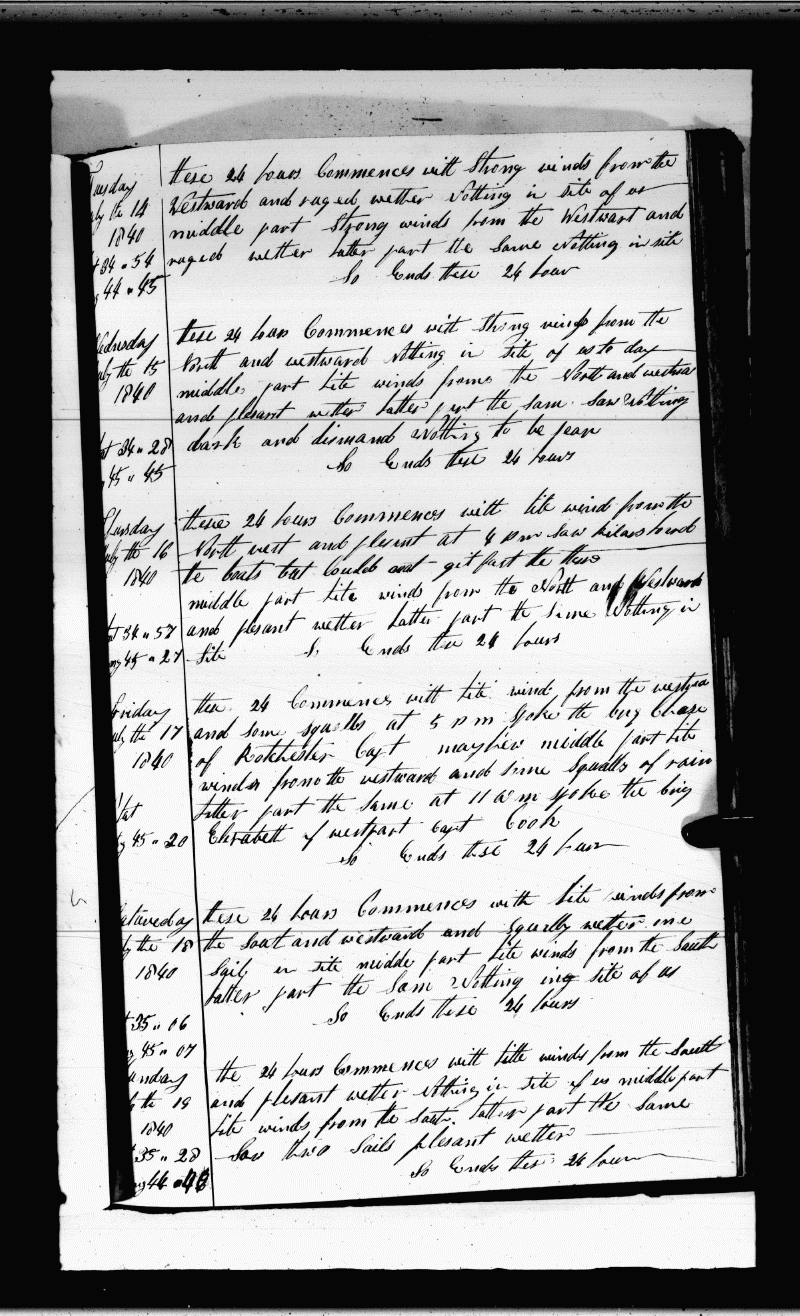 Tuesday
July the 14
1840
34 " 54
44 " 45
these 24 hours Commences with Strong winds from the
Westward and raged wether Nothing in site of us
middle part Strong winds from the Westwart and
raged wether latter part the Same Nothing in site
So Ends these 24 hour
Wednsday
July the 15
1840
34 " 28
45 " 45
these 24 hours Commences with Strong winds from the
North and westward Nothing in site of us to day
middle part lite winds from the North and westwa
and plesant wether latter part the sam Saw Nothing
dark and dismand Nothing to be sean
So Ends these 24 hours
Thursday
July the 16
1840
34 " 57
45 " 27
these 24 hours Commences with lite wind from the
North west and plesent at 4 pm Saw
the boats but could not git fast to them
middle part lite winds from the North and Westward
and plesant wether latter part the Same Nothing in
Site So Ends these 24 hours
Friday
July the 17
1840
Lat
45 " 20
these 24 Commences with lite wind from the westwa
and some squalls at 5 pm Spoke the brig Chase
of Rotchester Capt mayhew middle part lite
winds from the westward and some Squalls of rain
latter part the Same at 11 am spoke the brig
Elizabeth of westpart Capt Cook
So Ends these 24 hour
Saturday
the 18
1840
35 " 06
45 " 07
these 24 hours Commences with lite winds from
the Sout and westward and Squally wether one
Sail in site middle part lite winds from the South
latter part the Sam Nothing in site of us
So Ends these 24 hours
Sunday
the 19
1840
35 " 28
44 " 48
the 24 hours Commences with little winds from the South
and plesant wether Nothing in site of us middle part
lite winds from the South latter part the Same
Saw two Sails plesant wether
So Ends these 24 hour